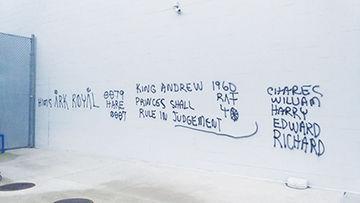 HMS ARK ROYAL
0879
HARE
0007
KING ANDREW 1960
PRINCES SHALL
RULE IN JUDGEMENT
RAT
40
CHARES
WILLIAM
HARRY
EDWARD
RICHARD